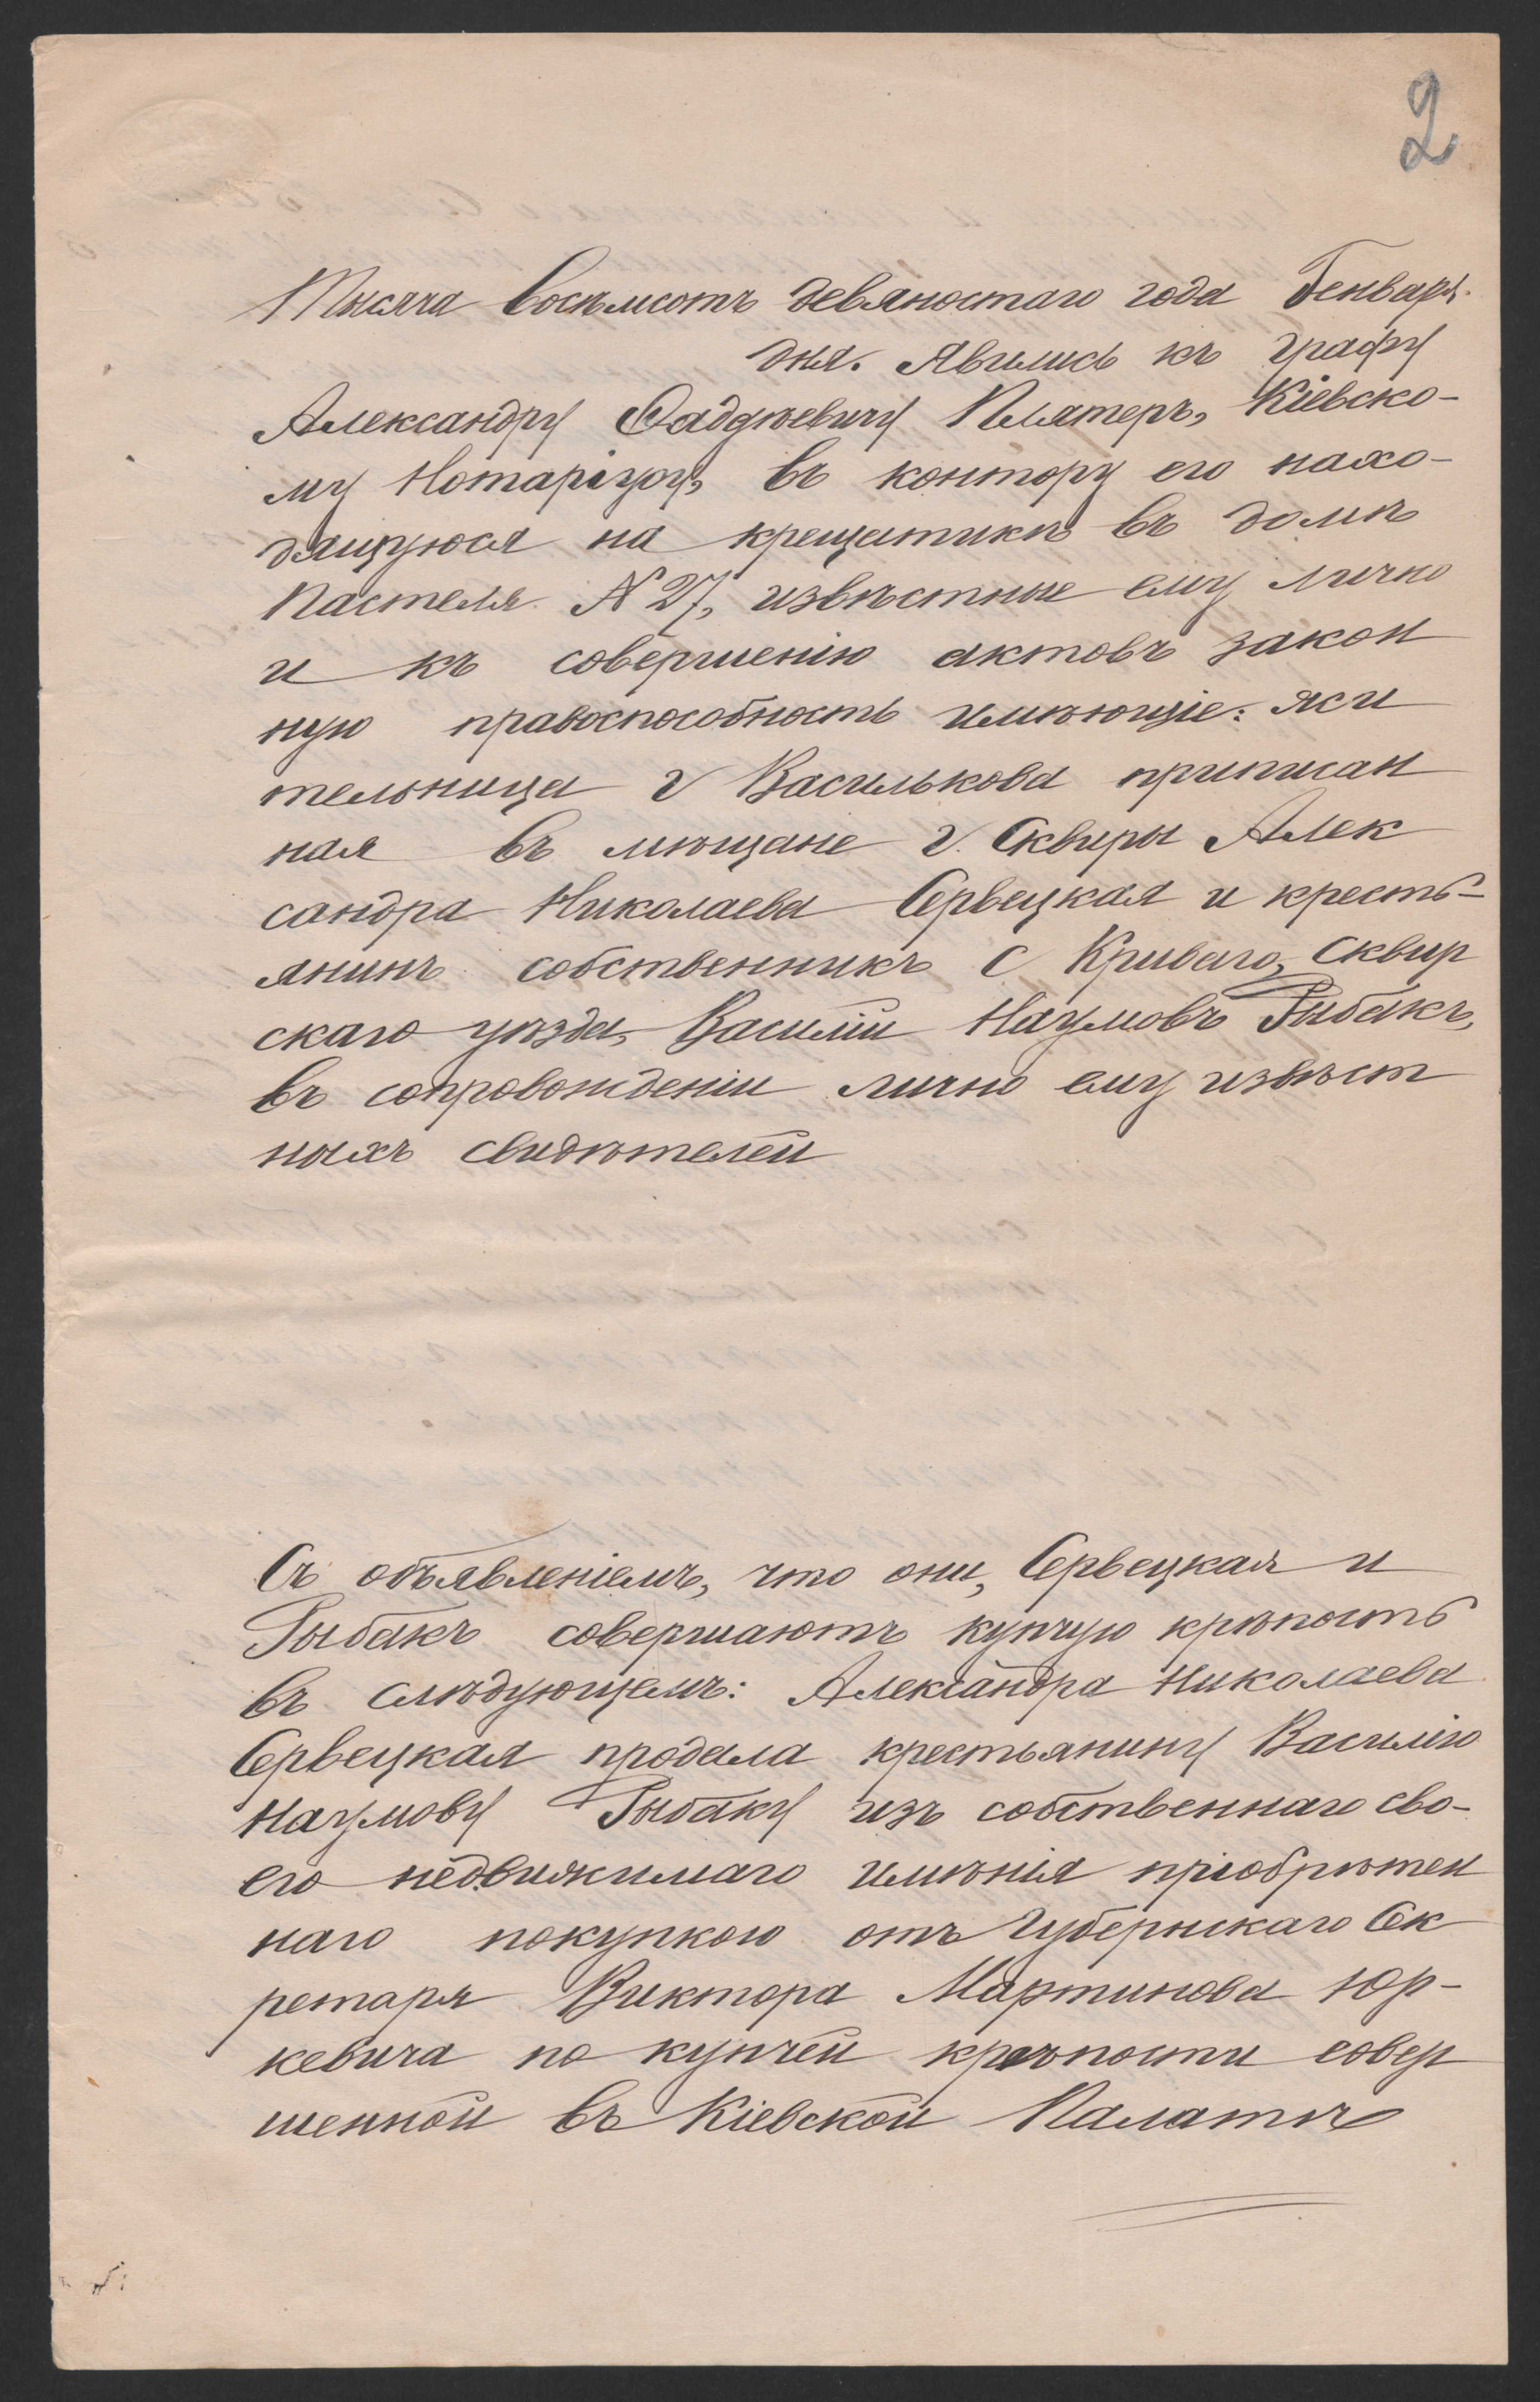 2
Тысяча восемьсотъ девяностаго года Генваря
дня. Явились къ графу
Александру Фаддѣевичу Плятеръ, Кіевско-
му Нотаріусу, въ контору его нахо-
дящуюся на крещатикѣ въ домѣ
Пастеля N 27, извѣстные ему лично
и къ совершенію актовъ закон
ную правоспособность имѣющіе: жи
тельница г Василькова приписан
ная въ мѣщане г. Сквиры Алек
сандра Николаева Сервецкая и кресть-
янинъ собственникъ с Криваго, Сквир
скаго уѣзда, Василій Наумовъ Рыбакъ,
въ сопровожденіи лично ему извѣст
ныхъ свидѣтелей
Съ объявленіемъ, что они, Сервецкая и
Рыбакъ совершаютъ купчую крѣпость
въ слѣдующемъ: Александра Николаева
Сервецкая продала крестьянину Василію
Наумову Рыбаку изъ собственнаго сво-
его недвижимаго имѣнія пріобрѣтен
наго покупкою отъ Губернскаго Сек
ретаря Виктора Мартинова Юр-
кевича по купчей крѣпости совер
шенной въ Кіевской Палатѣ